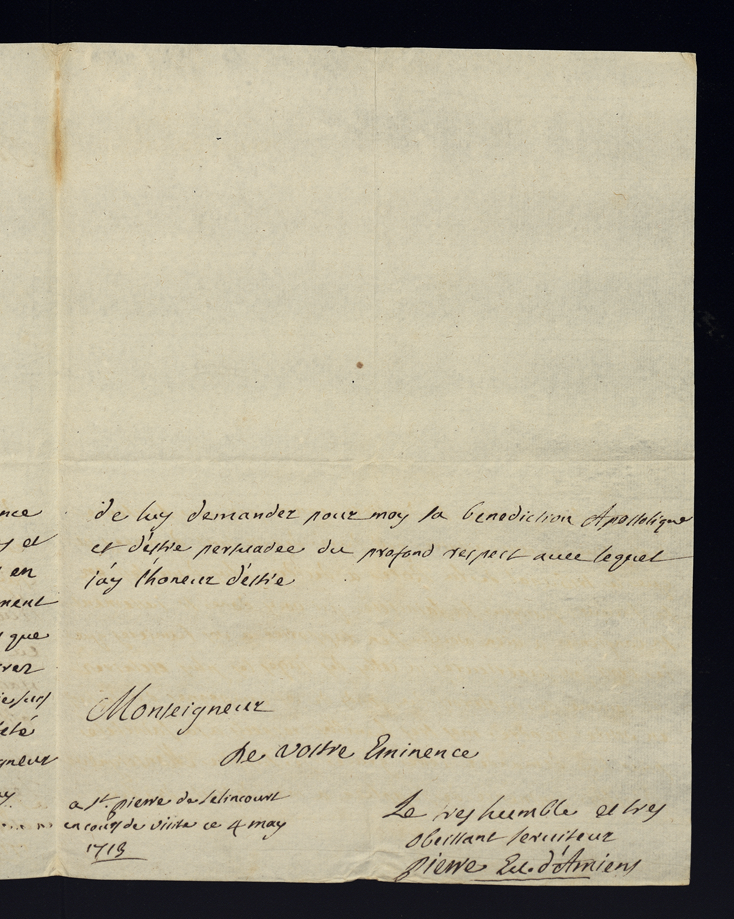 nce
y et
en
ment
que
rer
été
gneur
de luy demander pour moy sa benediction Apostolique
et d'éstre persuadée du profond respect avec lequel
j'ay l'honeur d'éstre
Monseigneur
De vostre Eminence
a St. pierre de selincourt
en cours de visite ce 4 may
1713
Le tres humble et tres
obeissant serviteur
pierre Ev. d'Amiens